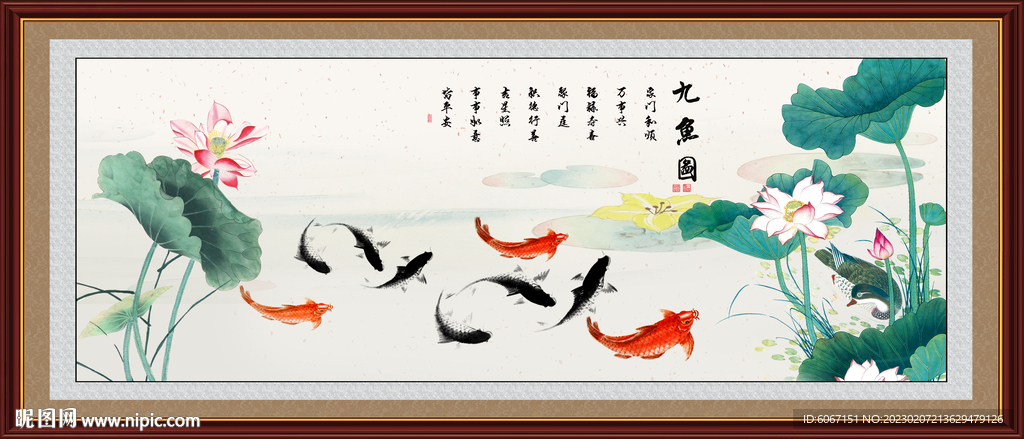 九魚圖
家门和顺
万事兴
福禄寿喜
聚门庭
积德行善
吉星照
事事如意
皆平安
昵图网 www.nipic.com
ID:6067151 NO:20230207213629479126